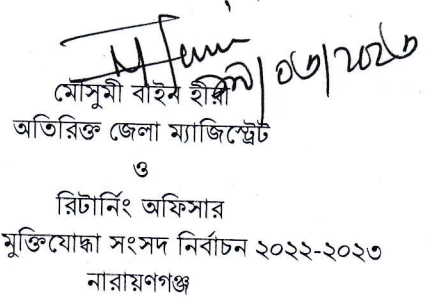 মৌসুমী বাইন হীরা
অতিরিক্ত জেলা ম্যাজিস্ট্রেট
ও
রিটার্নিং অফিসার
মুক্তিযোদ্ধা সংসদ নির্বাচন ২০২২-২০২৩
নারায়ণগঞ্জ